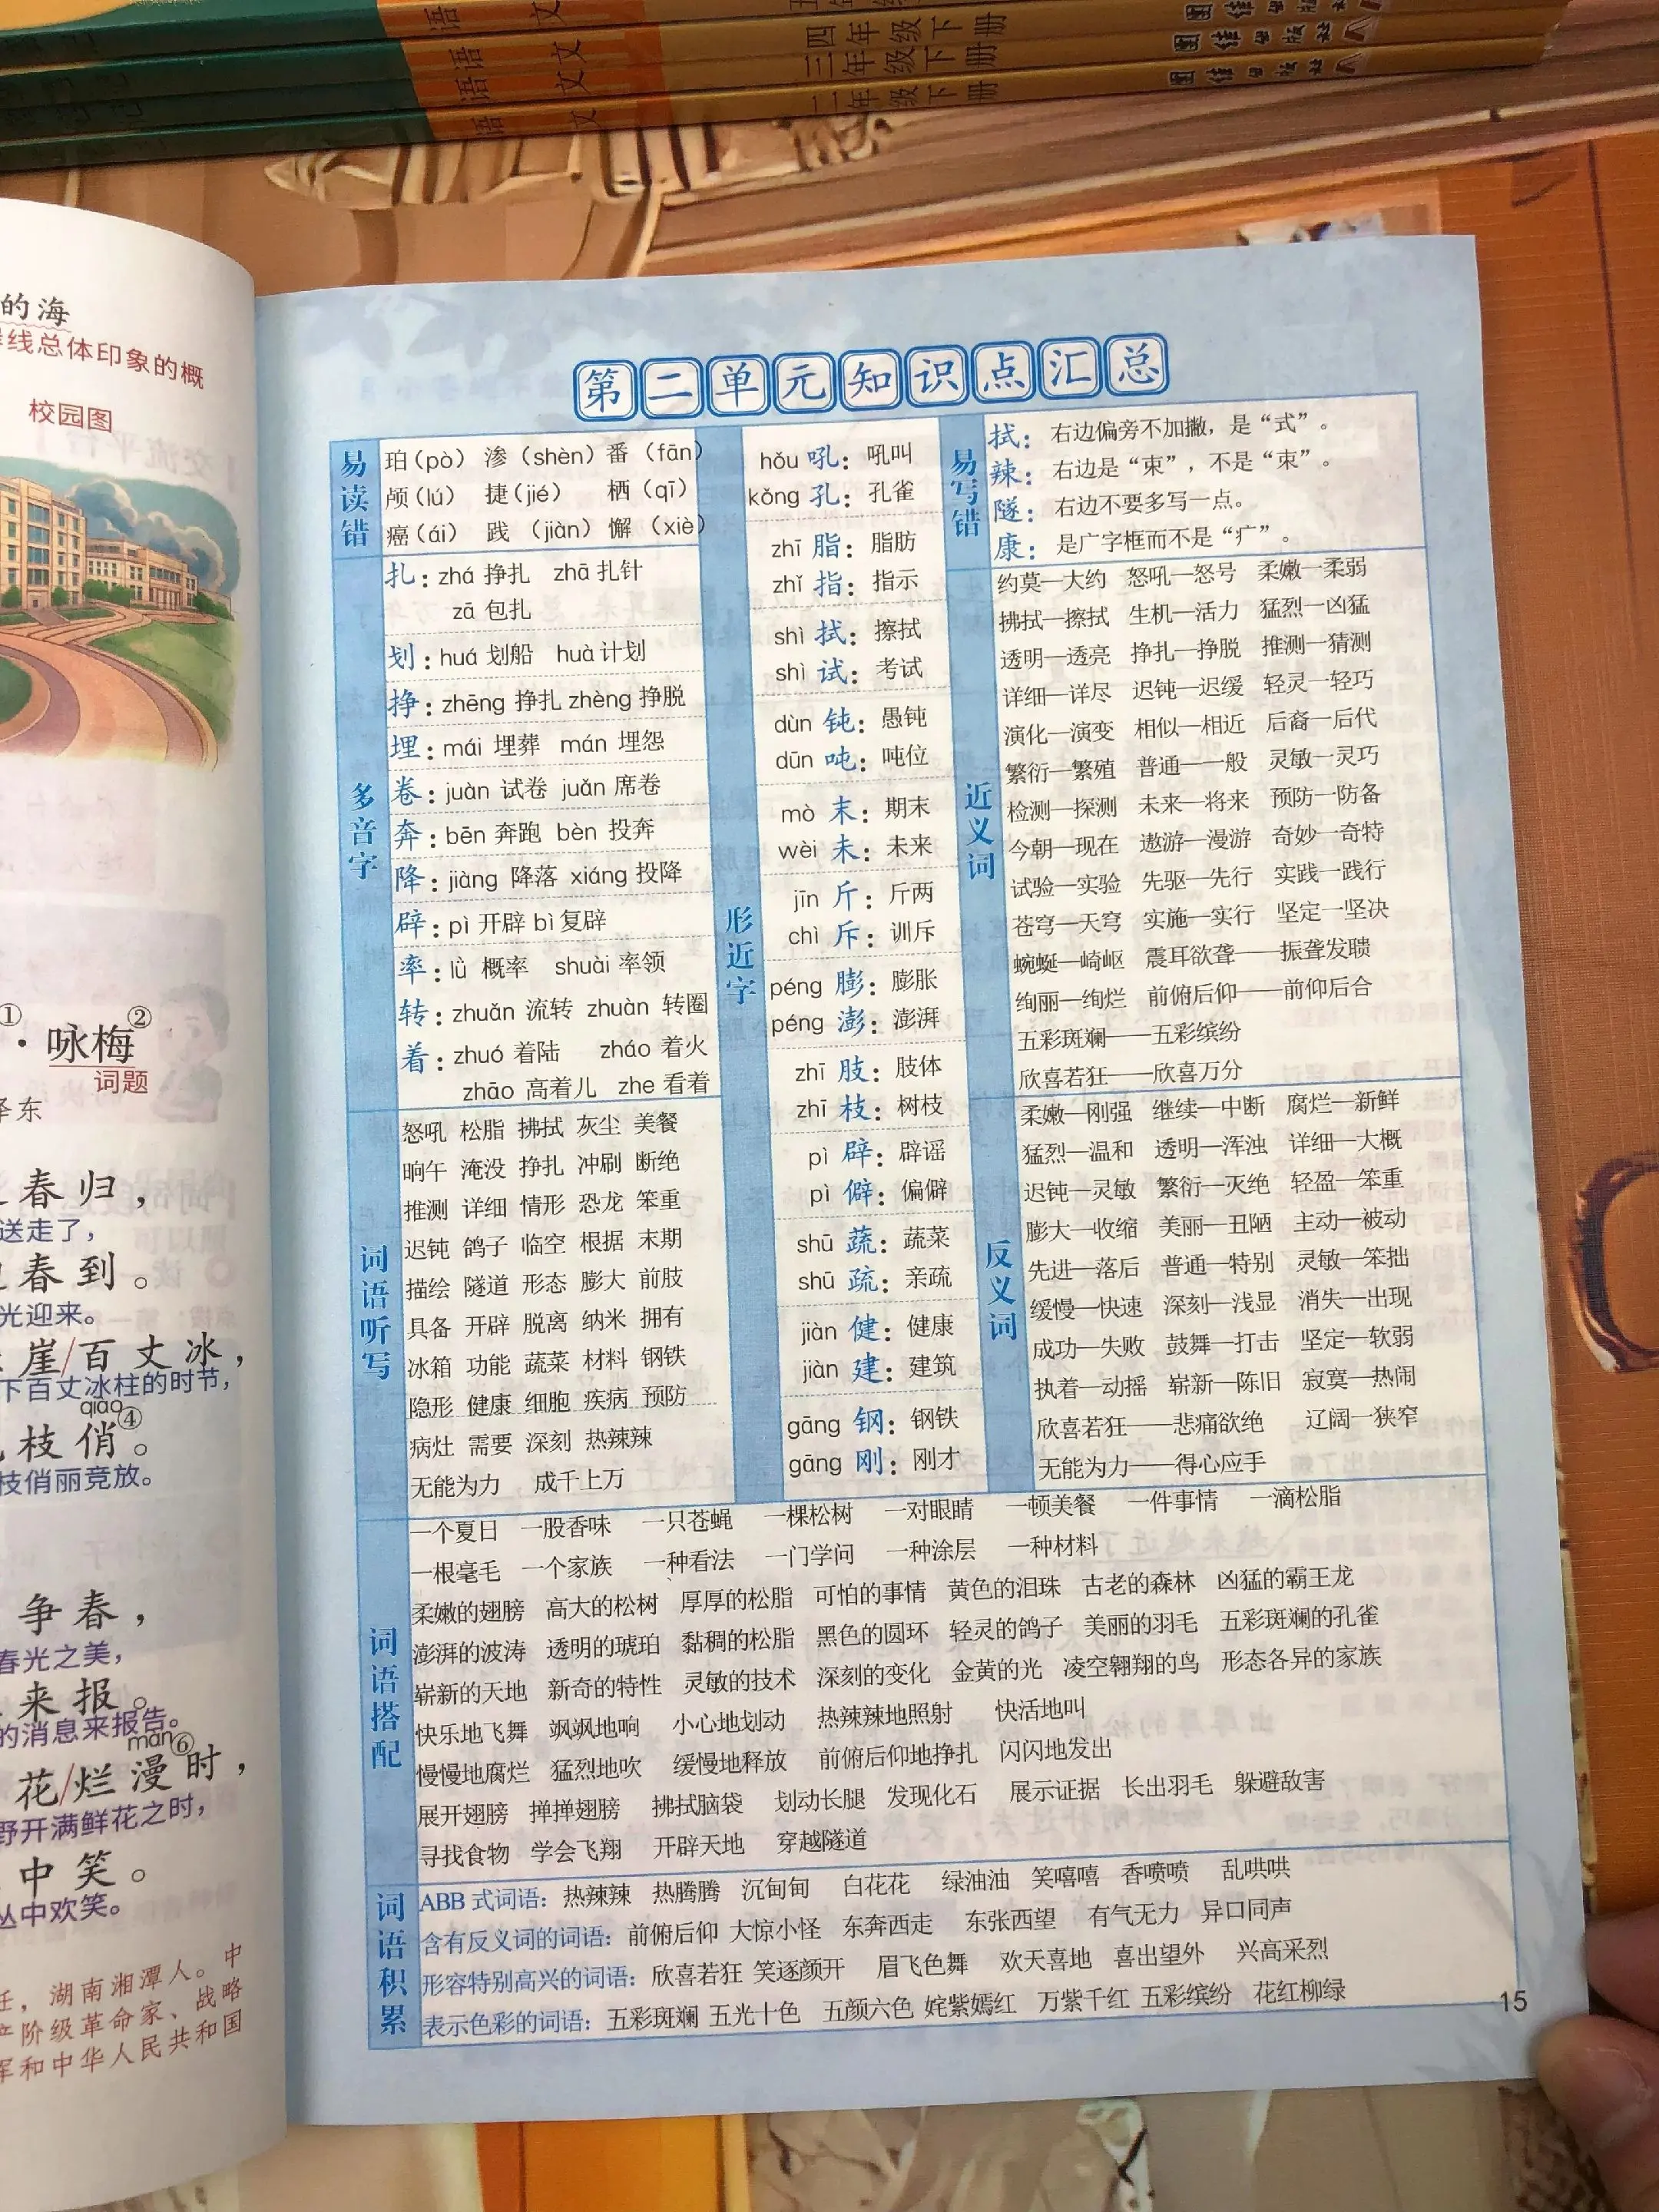 语文 四年级下册 团结出版社
语文 三年级下册 团结出版社
语文 二年级下册 团结出版社
的海
线总体印象的概
校园图
①
·咏梅②
词题
泽东
春归，
送走了，
春到。
光迎来。
崖/百丈冰，
下百丈冰柱的时节，
qiào
枝俏④。
枝俏丽竞放。
争春，
春光之美，
来报。
的消息来报告。
màn⑥
花/烂漫时，
野开满鲜花之时，
中笑。
丛中欢笑。
任，湖南湘潭人。中
产阶级革命家、战略
军和中华人民共和国
第二单元知识点汇总
易读错
珀（pò） 渗（shèn） 番（fān）
颅（lú） 捷（jié） 栖（qī）
癌（ái） 践（jiàn） 懈（xiè）
多音字
扎：zhá 挣扎 zhā 扎针
zā 包扎
划：huá 划船 huà 计划
挣：zhēng 挣扎 zhèng 挣脱
埋：mái 埋葬 mán 埋怨
卷：juàn 试卷 juǎn 席卷
奔：bēn 奔跑 bèn 投奔
降：jiàng 降落 xiáng 投降
辟：pì 开辟 bì 复辟
率：lǜ 概率 shuài 率领
转：zhuǎn 流转 zhuàn 转圈
着：zhuó 着陆 zháo 着火
zhāo 高着儿 zhe 看着
词语听写
怒吼 松脂 拂拭 灰尘 美餐
晌午 淹没 挣扎 冲刷 断绝
推测 详细 情形 恐龙 笨重
迟钝 鸽子 临空 根据 末期
描绘 隧道 形态 膨大 前肢
具备 开辟 脱离 纳米 拥有
冰箱 功能 蔬菜 材料 钢铁
隐形 健康 细胞 疾病 预防
病灶 需要 深刻 热辣辣
无能为力 成千上万
形近字
hǒu 吼：吼叫
kǒng 孔：孔雀
zhī 脂：脂肪
zhǐ 指：指示
shì 拭：擦拭
shì 试：考试
dùn 钝：愚钝
dūn 吨：吨位
mò 末：期末
wèi 未：未来
jīn 斤：斤两
chì 斥：训斥
péng 膨：膨胀
péng 澎：澎湃
zhī 肢：肢体
zhī 枝：树枝
pì 辟：辟谣
pì 僻：偏僻
shū 蔬：蔬菜
shū 疏：亲疏
jiàn 健：健康
jiàn 建：建筑
gāng 钢：钢铁
gāng 刚：刚才
易写错
拭：右边偏旁不加撇，是“式”。
辣：右边是“束”，不是“朿”。
隧：右边不要多写一点。
康：是广字框而不是“疒”。
近义词
约莫—大约 怒吼—怒号 柔嫩—柔弱
拂拭—擦拭 生机—活力 猛烈—凶猛
透明—透亮 挣扎—挣脱 推测—猜测
详细—详尽 迟钝—迟缓 轻灵—轻巧
演化—演变 相似—相近 后裔—后代
繁衍—繁殖 普通—一般 灵敏—灵巧
检测—探测 未来—将来 预防—防备
今朝—现在 遨游—漫游 奇妙—奇特
试验—实验 先驱—先行 实践—践行
苍穹—天穹 实施—实行 坚定—坚决
蜿蜒—崎岖 震耳欲聋——振聋发聩
绚丽—绚烂 前俯后仰——前仰后合
五彩斑斓——五彩缤纷
欣喜若狂——欣喜万分
反义词
柔嫩—刚强 继续—中断 腐烂—新鲜
猛烈—温和 透明—浑浊 详细—大概
迟钝—灵敏 繁衍—灭绝 轻盈—笨重
膨大—收缩 美丽—丑陋 主动—被动
先进—落后 普通—特别 灵敏—笨拙
缓慢—快速 深刻—浅显 消失—出现
成功—失败 鼓舞—打击 坚定—软弱
执着—动摇 崭新—陈旧 寂寞—热闹
欣喜若狂——悲痛欲绝 辽阔—狭窄
无能为力——得心应手
词语搭配
一个夏日 一股香味 一只苍蝇 一棵松树 一对眼睛 一顿美餐 一件事情 一滴松脂
一根毫毛 一个家族 一种看法 一门学问 一种涂层 一种材料
柔嫩的翅膀 高大的松树 厚厚的松脂 可怕的事情 黄色的泪珠 古老的森林 凶猛的霸王龙
澎湃的波涛 透明的琥珀 黏稠的松脂 黑色的圆环 轻灵的鸽子 美丽的羽毛 五彩斑斓的孔雀
崭新的天地 新奇的特性 灵敏的技术 深刻的变化 金黄的光 凌空翱翔的鸟 形态各异的家族
快乐地飞舞 飒飒地响 小心地划动 热辣辣地照射 快活地叫
慢慢地腐烂 猛烈地吹 缓慢地释放 前俯后仰地挣扎 闪闪地发出
展开翅膀 掸掸翅膀 拂拭脑袋 划动长腿 发现化石 展示证据 长出羽毛 躲避敌害
寻找食物 学会飞翔 开辟天地 穿越隧道
词语积累
ABB 式词语：热辣辣 热腾腾 沉甸甸 白花花 绿油油 笑嘻嘻 香喷喷 乱哄哄
含有反义词的词语：前俯后仰 大惊小怪 东奔西走 东张西望 有气无力 异口同声
形容特别高兴的词语：欣喜若狂 笑逐颜开 眉飞色舞 欢天喜地 喜出望外 兴高采烈
表示色彩的词语：五彩斑斓 五光十色 五颜六色 姹紫嫣红 万紫千红 五彩缤纷 花红柳绿
15